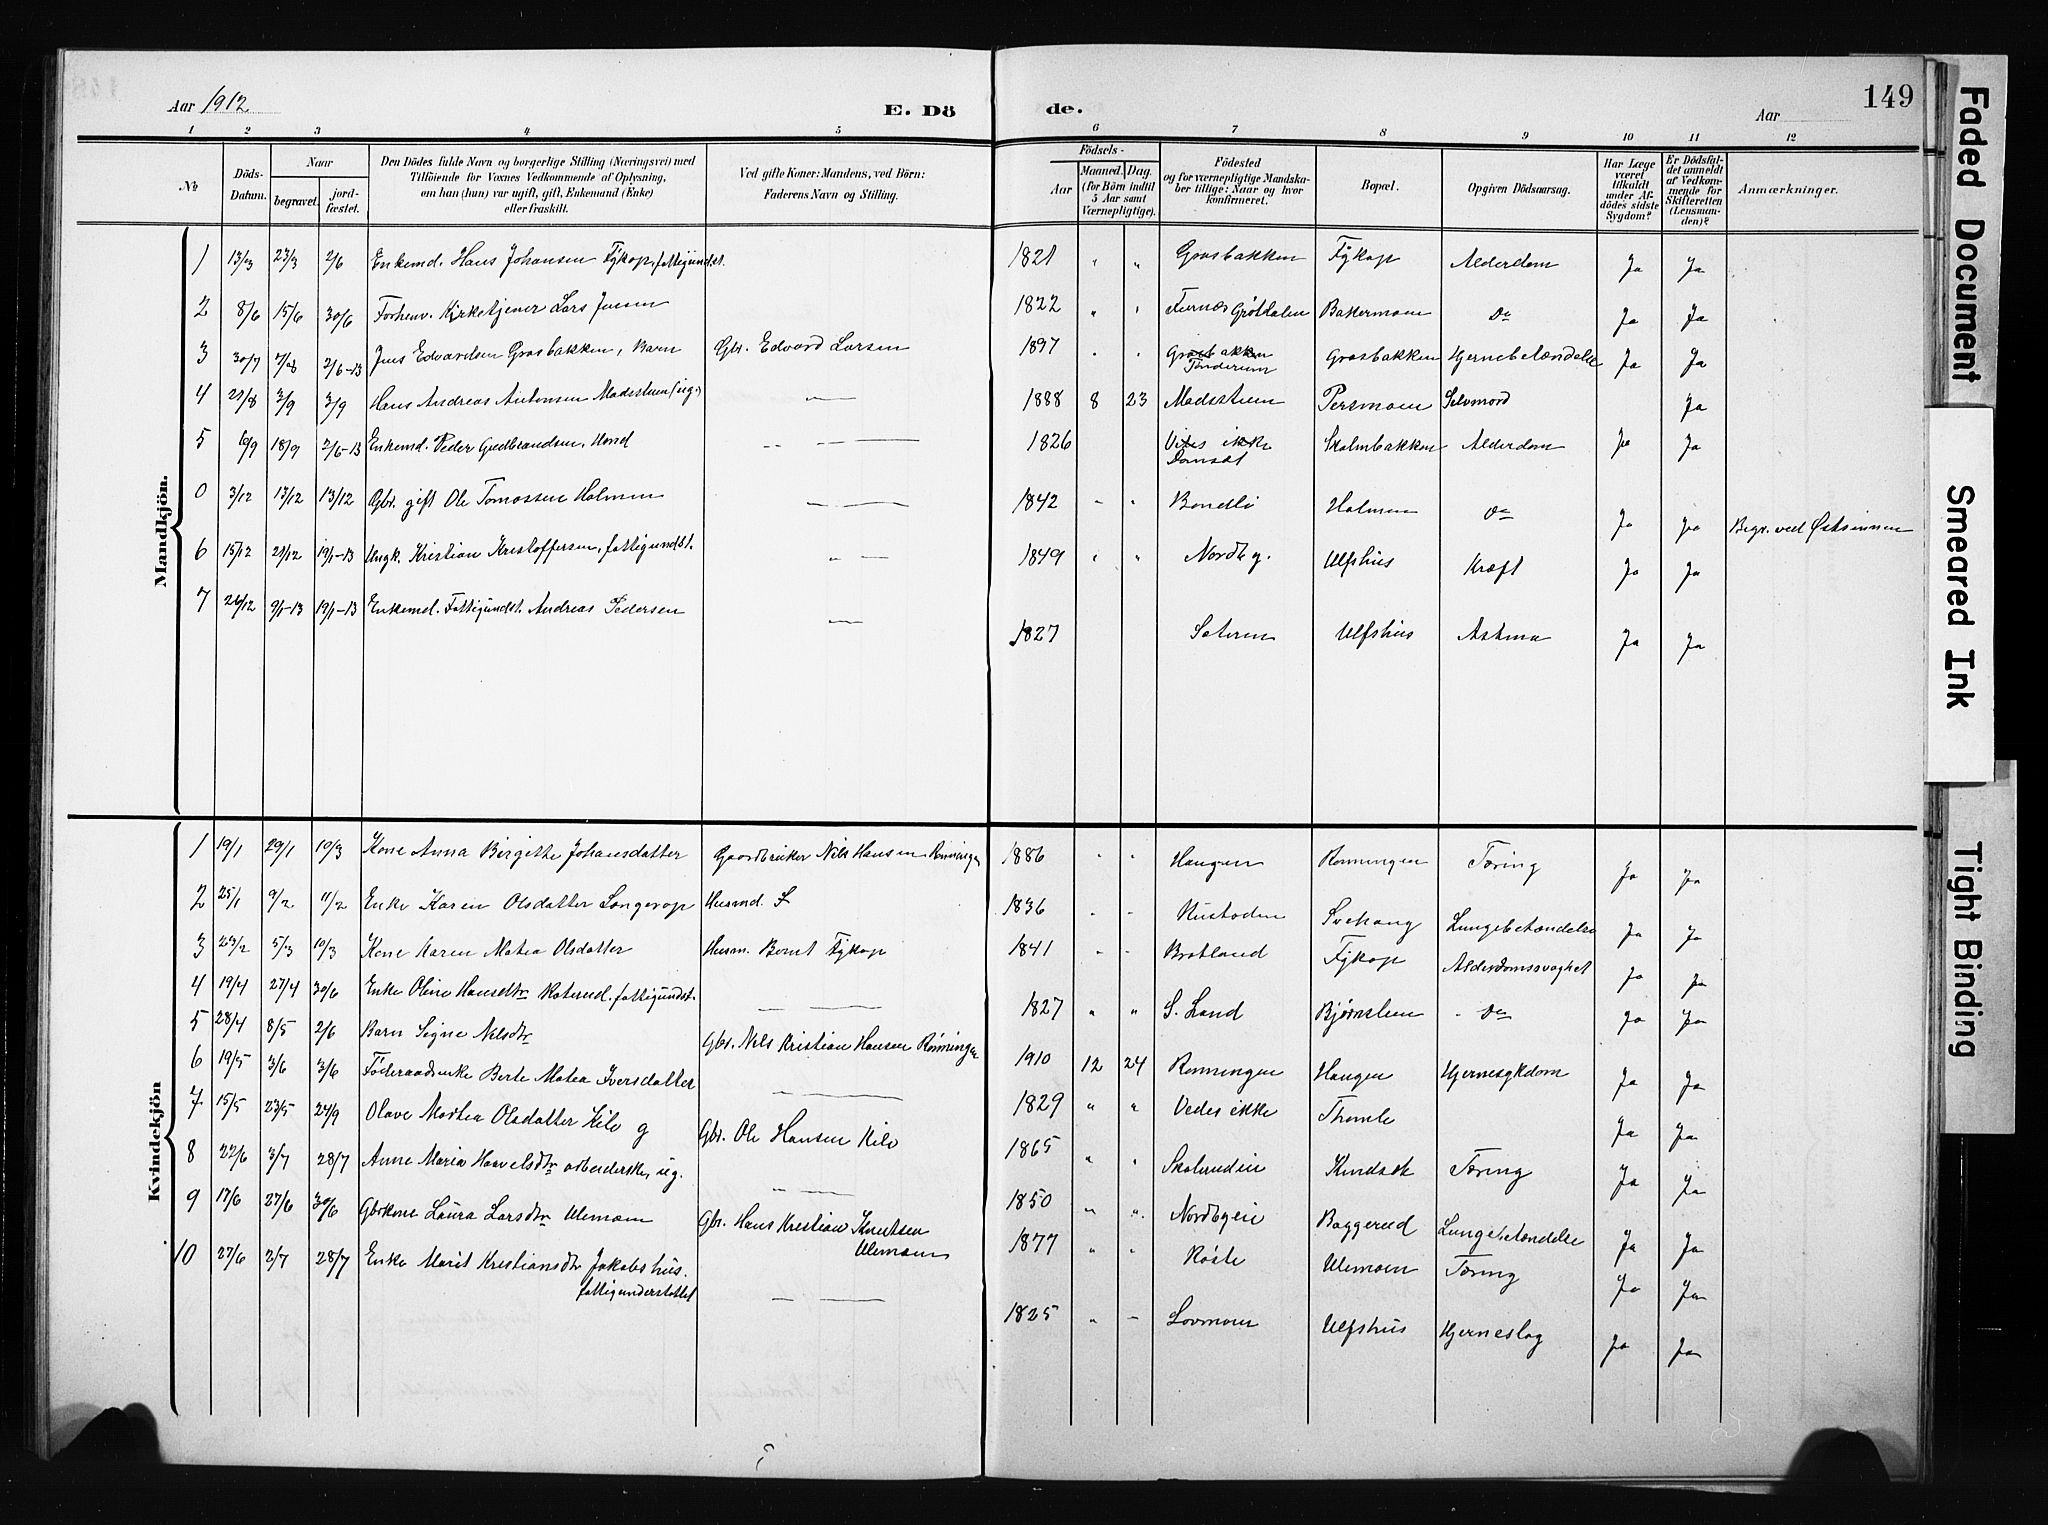 Aar 1912
E. Dö
de.
Aar
149
1 2 3 4 5 6 7 8 9 10 11 12
No
Döds-Datum.
Naar
begravet.
jordfæstet.
Den Dödes fulde Navn og borgerlige Stilling (Næringsvei) med
Tilföiende för Voxnes Vedkommende af Oplysning,
om han (hun) var ugift, gift, Enkemand (Enke)
eller fraskilt.
Ved gifte Koner: Mandens, ved Börn:
Faderens Navn og Stilling.
Födsels-
Aar
Maaned. Dag.
(for Börn indtil
5 Aar samt
Værnepligtige).
Födested
og for værnepligtige Mandskaber tillige: Naar og hvor
konfirmeret.
Bopæl.
Opgiven Dödsaarsag.
Har Læge
været
tilkaldt
under Afdödes sidste
Sygdom?
Er Dödsfaldet anmeldt
af Vedkommende for
Skifteretten
(Lensmanden)?
Anmærkninger.
Mandkjön.
1 13/3 23/3 2/6 Enkemd. Hans Johansen Fykop, fattigundst. 1821 " " Grosbakken Fykop Alderdom Ja Ja
2 8/6 15/6 30/6 Forhenv. Kirketjener Lars Jensen 1822 " " Furnes Grøtdalen Bakermoen Do Ja Ja
3 30/7 7/8 2/6-13 Jens Edvardsen Grosbakken, Barn Gbr. Edvard Larsen 1897 " " Grosbakken Tønderum Grosbakken Hjernebetændelse Ja Ja
4 29/8 3/9 3/9 Hans Andreas Antonsen Madssteen (ug.) — 1888 8 23 Madssteen Persmoen Selvmord Ja
5 10/9 18/9 2/6-13 Enkemd. Peder Gudbrandsen, Hond -- — — 1826 Vites ikke Domsæt Skolmbakken Alderdom Ja Ja
0 3/12 13/12 13/12 Gbr. gift Ole Tomassen Holmen — — 1842 - " Bondli Holmen Do Ja Ja Begr. ved Østsinnen
6 15/12 21/12 19/1-13 Ungk. Kristian Kristoffersen, fattigundst. " — 1849 " " Nordby. Ulfshus Kræft Ja Ja
7 26/12 9/1-13 19/1-13 Enkemd. Fattigundst. Andreas Pedersen — 1827 Sateren Ulfshus Astma Ja Ja
Kvindekjön
1 19/1 29/1 10/3 Kone Anna Birgitte Johansdatter Gaardbruker Nils Hansen Rønningen 1886 " " Haugen Rønningen Tæring Ja Ja
2 25/1 9/2 11/2 Enke Karen Olsdatter Longerop Husmd. 1836 " - Hustoden Svehaug Lungebetændelse Ja Ja
3 23/2 5/3 10/3 Kone Karen Matea Olsdatter Husm. Bernt Fykop 1841 " - Brotland Fykop Alderdomssvaghet Ja Ja
4 19/4 27/4 30/6 Enke Oline Hansdtr Roterud. fattigundst. — — 1827 " " S. Land Bjørnsteen - Do Ja Ja
5 28/4 8/5 2/6 Barn Signe Nilsdtr Gbr. Nils Kristian Hansen Rønningen 1910 12 24 Rønningen Haugen Hjernesykdom Ja Ja
6 19/5 3/6 3/6 Föderaadsenke Berte Matea Iversdatter — — 1829 " " Vedes ikke Thomle Ja Ja
7 15/5 23/5 24/9 Olave Martea Olsdatter Kile g Gbr. Ole Hansen Kile 1865 " " Skolerudeie Kindsæt Tæring Ja Ja
8 22/6 3/7 28/7 Anne Maria Havelsdtr arbeiderske, ug. " — 1850 " " Nordbyeie Baggerud Lungebetændelse Ja Ja
9 17/6 27/6 30/6 Gbrkone Laura Larsdtr Ulemoen Gbr. Hans Kristian Knutsen Ulemoen 1877 " " Røste Ulemoen Tæring Ja Ja
10 27/6 2/7 28/7 Enke Marit Kristiansdtr Jakobshus. fattigunderstöttet — — 1825 " — Lovmoen Ulfshus Hjerneslag Ja Ja
Faded Document
Smeared Ink
Tight Binding